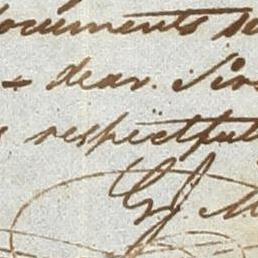 documents
dear Sir
respectful
G. J. M